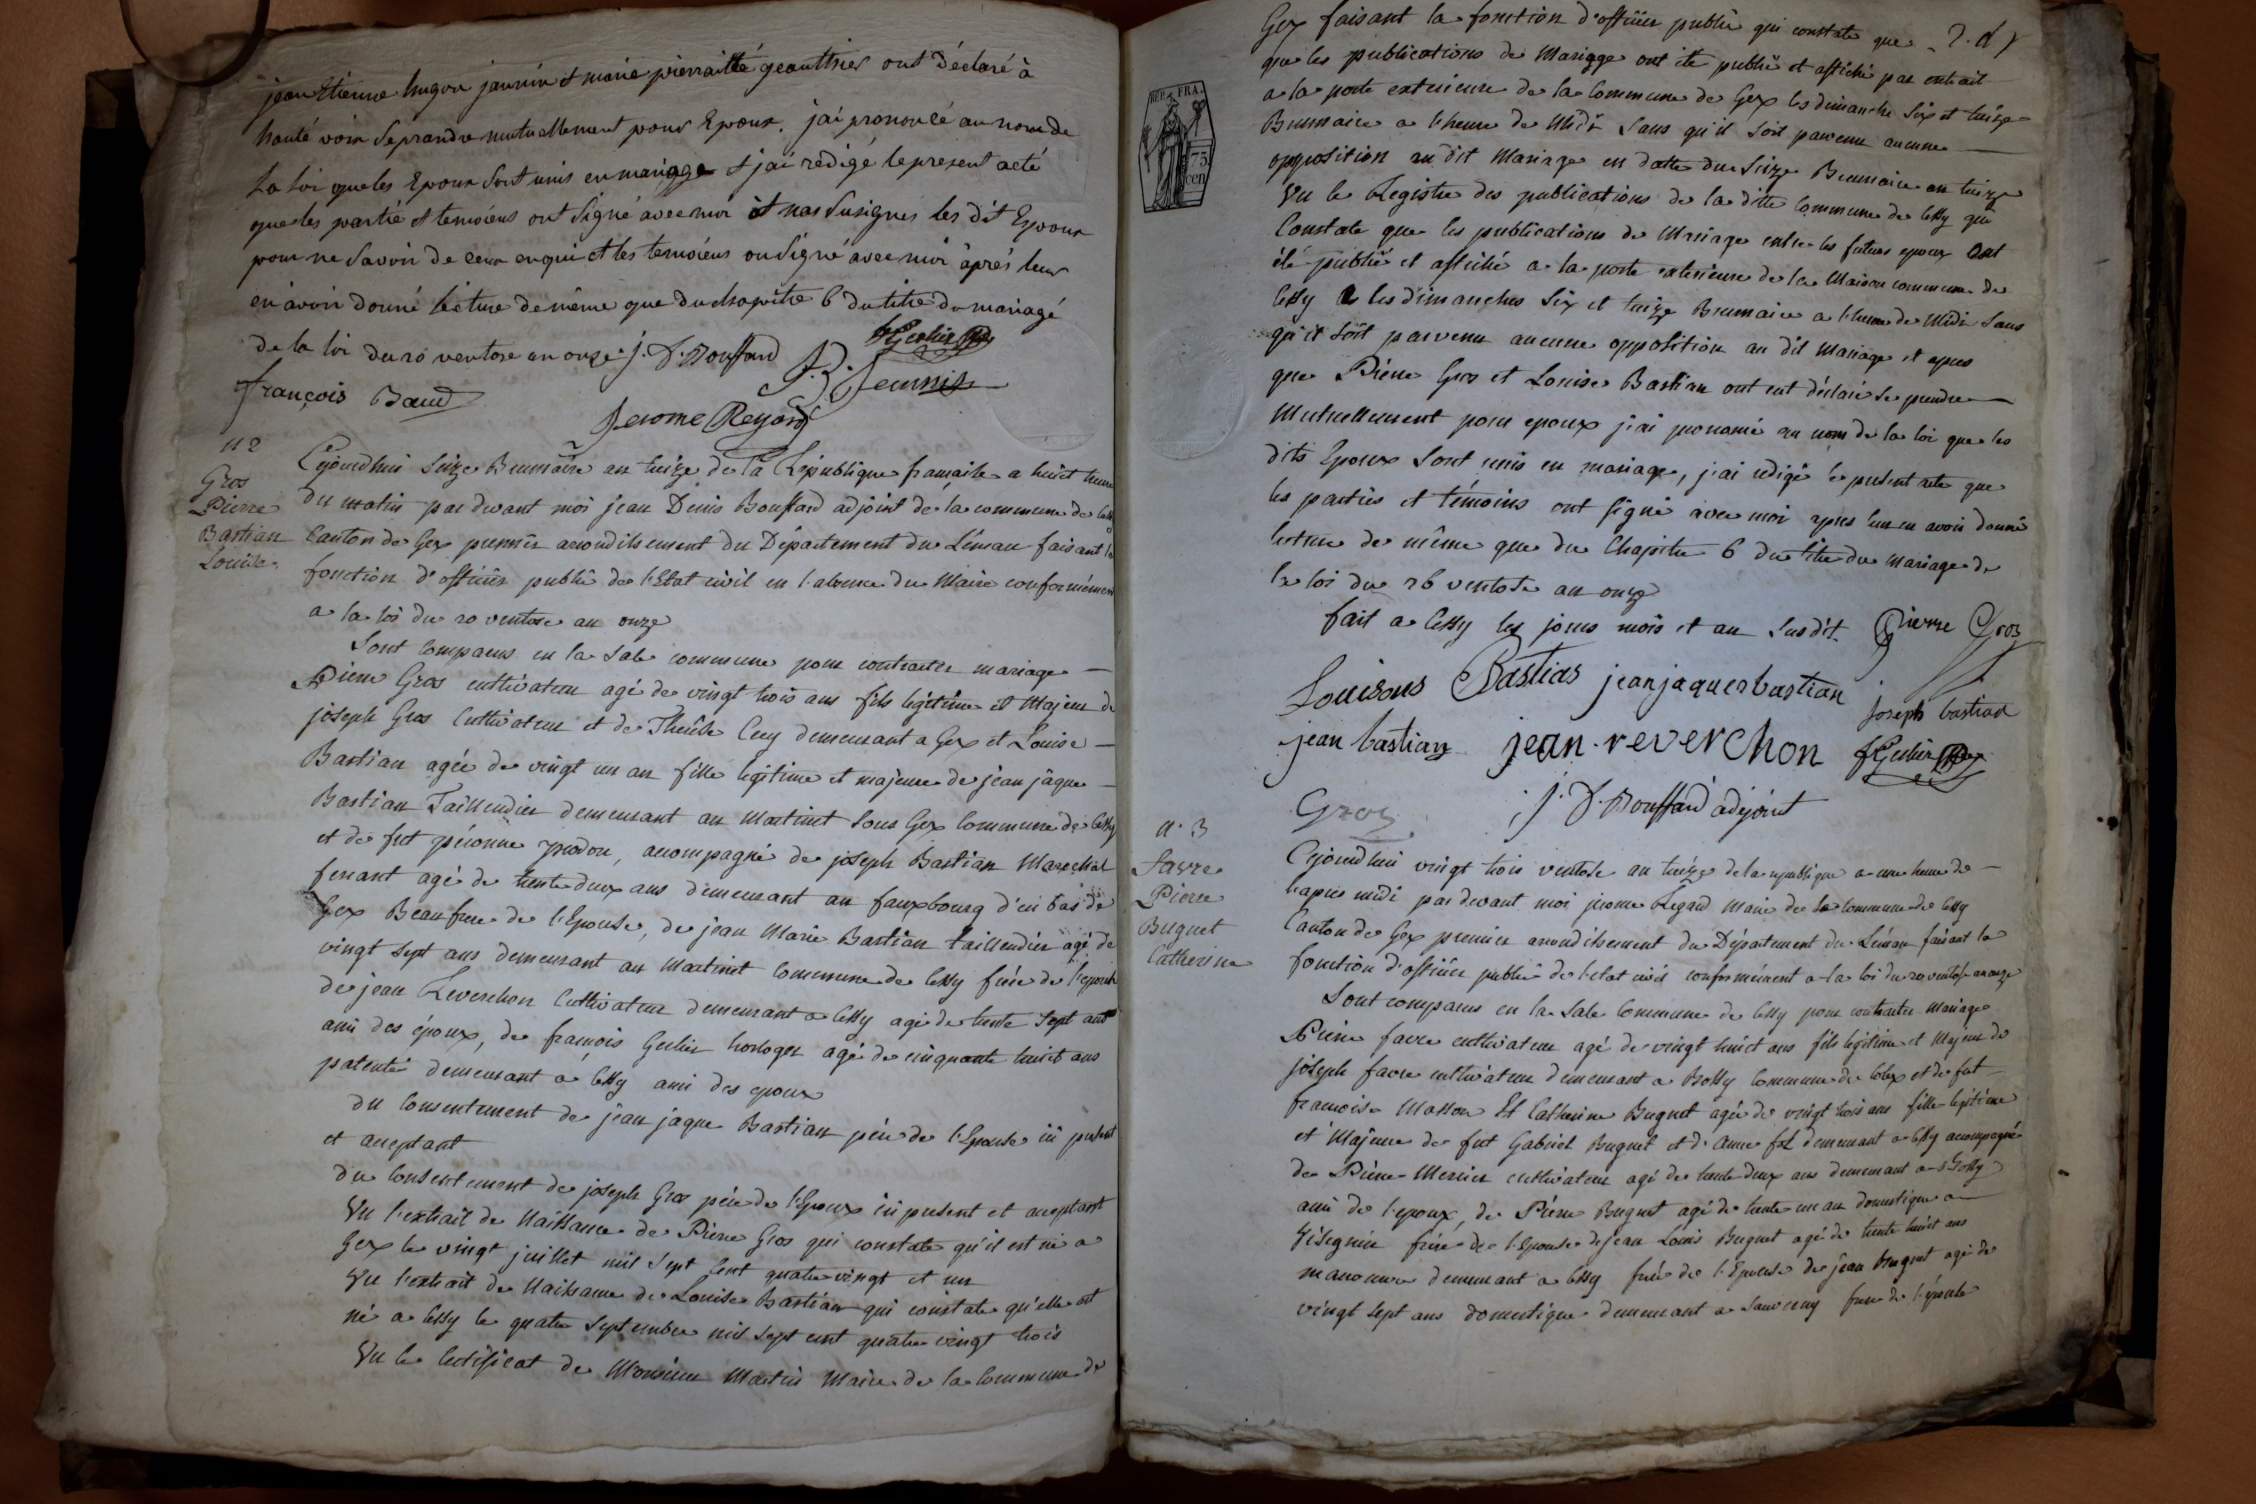 jean Etienne hugon jaunin et marie pierraitte geauttier ont déclaré à
hauté voix se prandre mutuellement pour Epoux. j'ai prononcé au nom de
La loi que les Epoux sont unis en mariage et j'ai redigé le present acte
que les partié et temoiens ont signé avec moi et nos susignes les dit Epoux
pour ne savoir de ceux enqui et les temoiens on signé avec moi après leur
en avoir donné lecture de même que du chapitre 6 du titre du mariagé
de la loi du 20 ventose an onze. j. D. Bouffard
françois Baud
Jerome Regard
n 2
Gros
Pierre
Bastian
Louise.
Cejourdhui seize Brumaire an treize de la République française a huict heure
du matin par devant moi jean Denis Bouffard adjoint de la commune de Cessy
Canton de Gex premier arrondissement du Département du Léman faisant la
fonction d'officier public de l'Etat civil en l'absence du Maire conformément
a la loi du 20 ventose an onze
Sont comparus en la sale commune pour contracter mariage
Pierre Gros cultivateur agé de vingt trois ans fils légitime et Majeur de
joseph Gros Cultivateur et de Cuzy demeurant a Gex et Louise
Bastian agée de vingt un an fille legitime et majeure de jean jâque
Bastian Taillendier demeurant au Martinet sous Gex Commune de Cessy
et de fut péronne prodon, accompagné de joseph Bastian Marechal
ferrant agé de trente deux ans demeurant au fauxbourg d'en bas de
Gex Beaufrere de l'Epouse, de jean Marie Bastian taillendier agé de
vingt sept ans demeurant au Martinet Commune de Cessy frère de l'epouse
de jean Reverchon Cultivateur demeurant a Cessy agé de trente sept ans
ami des époux, de françois Gerlier horloger agé de cinquante huict ans
patenté demeurant a Cessy ami des epoux
du Consentement de jean jaque Bastian père de l'Epouse ici présent
et aceptant
du Consentement de joseph Gros père de l'Epoux ici present et aceptant
Vu l'extrait de Naissance de Pierre Gros qui constate qu'il est né a
Gex le vingt juillet mil sept Cent quatre vingt et un
Vu l'extrait de Naissance de Louise Bastian qui constate qu'elle est
né a Cessy le quatre septembre mil sept cent quatre vingt trois
Vu le Certificat de Monsieur Martin Maire de la Commune de
Gex faisant la fonction d'officier public qui constate que
que les publications de Mariage ont été publié et affiché par extrait
a la porte exterieure de la Commune de Gex les dimanche six et treize
Brumaire a l'heure de Midi sans qu'il soit parvenu aucune
opposition au dit Mariage en datte du seize Brumaire an treize
Vu le Registre des publications de la ditte Commune de Cessy qui
Constate que les publications de Mariage entre les futurs epoux ont
été publié et affiché a la porte exterieure de la Maison commune de
Cessy les dimanches six et treize Brumaire a l'heure de Midi sans
qu'il soit parvenu aucune opposition au dit Mariage et apres
que Pierre Gros et Louise Bastian ont eut déclaré se prendre
Mutuellement pour epoux j'ai prononcé au nom de la loi que les
dits Epoux sont unis en mariage, j'ai rédigé le présent acte que
les parties et témoins ont signé avec moi apres leur en avoir donné
lecture de même que du Chapitre 6 du titre du Mariage de
la loi du 26 ventose an onze
fait a Cessy les jours mois et an susdit. Pierre Gros
REP. FRA.
75
cen
Louisons Bastias jean jaques bastian
joseph bastian
jean bastian jean. reverchon
Gros
j. D. Bouffard adejoint
n. 3
Favre
Pierre
Buguet
Catherine
Cejourdhui vingt trois ventose an treize de la republique a une heure de
l'apres midi par devant moi jerome Regard Maire de la Commune de Cessy
Canton de Gex premier arrondissement du Département du Léman faisant la
fonction d'officier public de l'etat civil conformément a la loi du 20 ventose an onze
Sont comparus en la Sale Commune de Cessy pour contracter Mariage
Pierre favre cultivateur agé de vingt huict ans fils legitime et Majeur de
joseph favre cultivateur demeurant a Bossy Commune de Colex et de fut
francoise Masson Et Catherine Buguet agée de vingt trois ans fille legitime
et Majeure de fut Gabriel Buguet et d'anne demeurant a Cessy acompagné
de Pierre Mercier cultivateur agé de trente deux ans demeurant a
ami de l'epoux, de Pierre Buguet agé de trente un an domestique a
frère de l'Epouse de jean Louis Buguet agé de trente huict ans
manouvre demeurant a Cessy frère de l'Epouse de jean Buguet agé de
vingt sept ans domestique demeurant a Sauverny frere de l'épouse